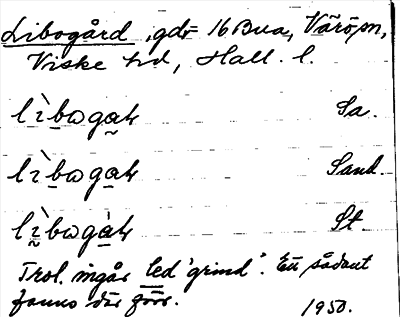 Libogård, gd= 16 Bua, Värö sn,
Viske hd, Hall. l.
lìbogaɖ Sa.
lìbogaɖ Sand.
lìbogàɖ St
Trol. ingår led 'grind'. Ett sådant
fanns där förr. 1950.